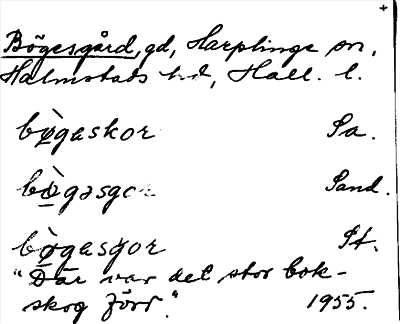 Bögesgård, gd, Harplinge sn,
Halmstads hd, Hall. l.
bø̀gaskor Sa.
bø̀gəsgor Sand.
bø̀gasgor St.
"Där var det stor bok-
skog förr." 1955.